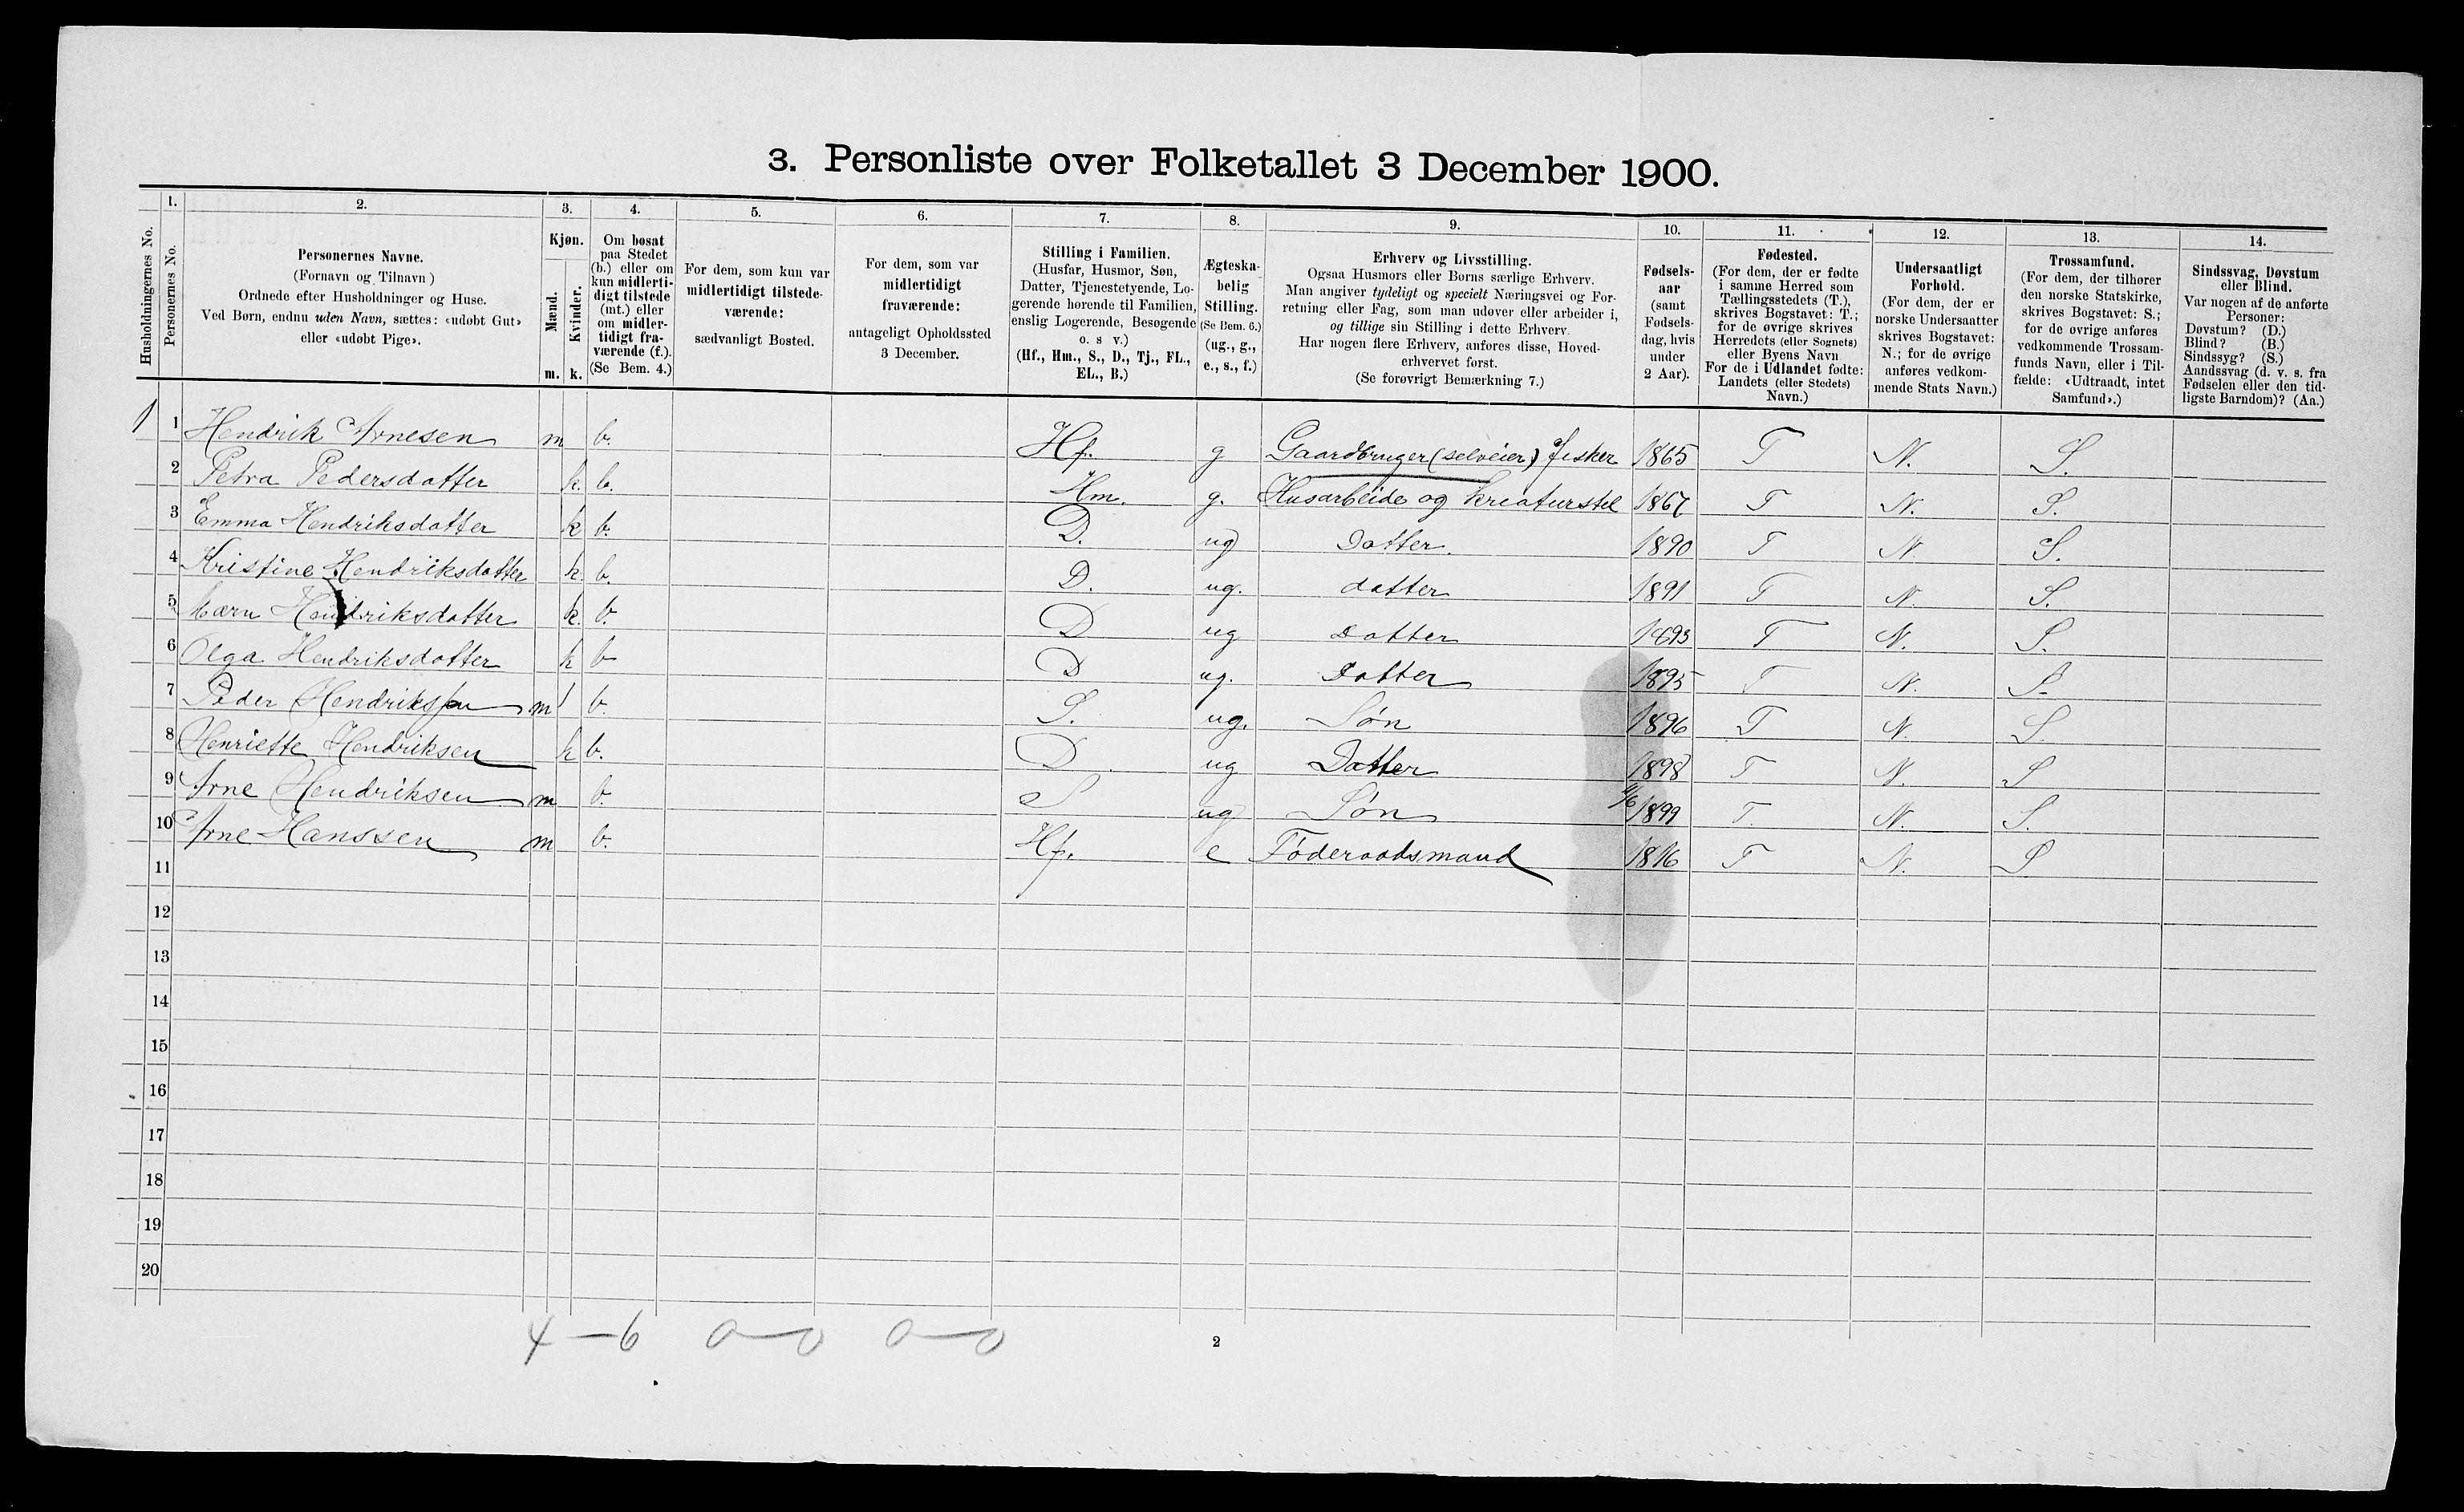 3. Personliste over Folketallet 3 December 1900.
1. 2. 3. 4. 5. 6. 7. 8. 9. 10. 11. 12. 13. 14.
Husholdningernes No.
Personernes No.
Personernes Navne.
(Fornavn og Tilnavn)
Ordnede efter Husholdninger og Huse.
Ved Børn, endnu uden Navn, sættes: «udøbt Gut»
eller «udøbt Pige».
Kjøn.
Mænd.
Kvinder.
m. k.
Om bosat
paa Stedet
(b.) eller om
kun midlerti-
digt tilstede
(mt.) eller
om midler-
tidigt fra-
værende (f.).
(Se Bem. 4.)
For dem, som kun var
midlertidigt tilstede-
værende:
sædvanligt Bosted.
For dem, som var
midlertidigt
fraværende:
antageligt Opholdssted
3 December.
Stilling i Familien.
(Husfar, Husmor, Søn,
Datter, Tjenestetyende, Lo-
gerende hørende til Familien,
enslig Logerende, Besøgende
o. s v.)
(Hf., Hm., S., D., Tj., FL.,
EL., B.)
Ægteska-
belig
Stilling.
(Se Bem. 6.)
(ug., g.,
e., s., f.)
Erhverv og Livsstilling.
Ogsaa Husmors eller Børns særlige Erhverv.
Man angiver tydeligt og specielt Næringsvei og For-
retning eller Fag, som man udøver eller arbeider i,
og tillige sin Stilling i dette Erhverv.
Har nogen flere Erhverv, anføres disse, Hoved-
erhvervet først.
(Se forøvrigt Bemærkning 7.)
Fødsels-
aar
(samt
Fødsels-
dag, hvis
under
2 Aar).
Fødested.
(For dem, der er fødte
i samme Herred som
Tællingsstedets (T.),
skrives Bogstavet: T.;
for de øvrige skrives
Herredets (eller Sognets)
eller Byens Navn
For de i Udlandet fødte:
Landets (eller Stedets)
Navn.)
Undersaatligt
Forhold.
(For dem, der er
norske Undersaatter
skrives Bogstavet:
N.; for de øvrige
anføres vedkom-
mende Stats Navn.)
Trossamfund.
(For dem, der tilhører
den norske Statskirke,
skrives Bogstavet: S.;
for de øvrige anføres
vedkommende Trossam-
funds Navn, eller i Til-
fælde: «Udtraadt, intet
Samfund».)
Sindssvag, Døvstum
eller Blind.
Var nogen af de anførte
Personer:
Døvstum? (D.)
Blind? (B.)
Sindssyg? (S.)
Aandssvag (d. v. s. fra
Fødselen eller den tid-
ligste Barndom)? (Aa.)
1 1 Hendrik Arnesen m b. Hf. g Gaardbruger (selveier) fisker 1865 T N. S.
2 Petra Pedersdatter k. b. Hm. g. Husarbeide og kreaturstel 1867 T N. S.
3 Emma Hendriksdatter k b. D. ug Datter. 1890 T N. S.
4 Kristine Hendriksdatter k. b. D. ug. datter 1891 T N. S.
5 Hendriksdatter k. b. D ug Datter 1893 T N. S.
6 Olga Hendriksdatter k b D ug. Datter 1895 T N. S.
7 Peder Hendriksen m b. S. ug. Søn 1896 T N. S.
8 Henriette Hendriksen k b. D ug Datter 1898 T N. S
9 Arne Hendriksen m b. S ug Søn 1899 T. N. S.
10 Arne Hanssen m b. Hf. e Føderaadsmand 1816 T N. S
11
12
13
14
15
16
17
18
19
20
4 — 6 0—0 0—0
2